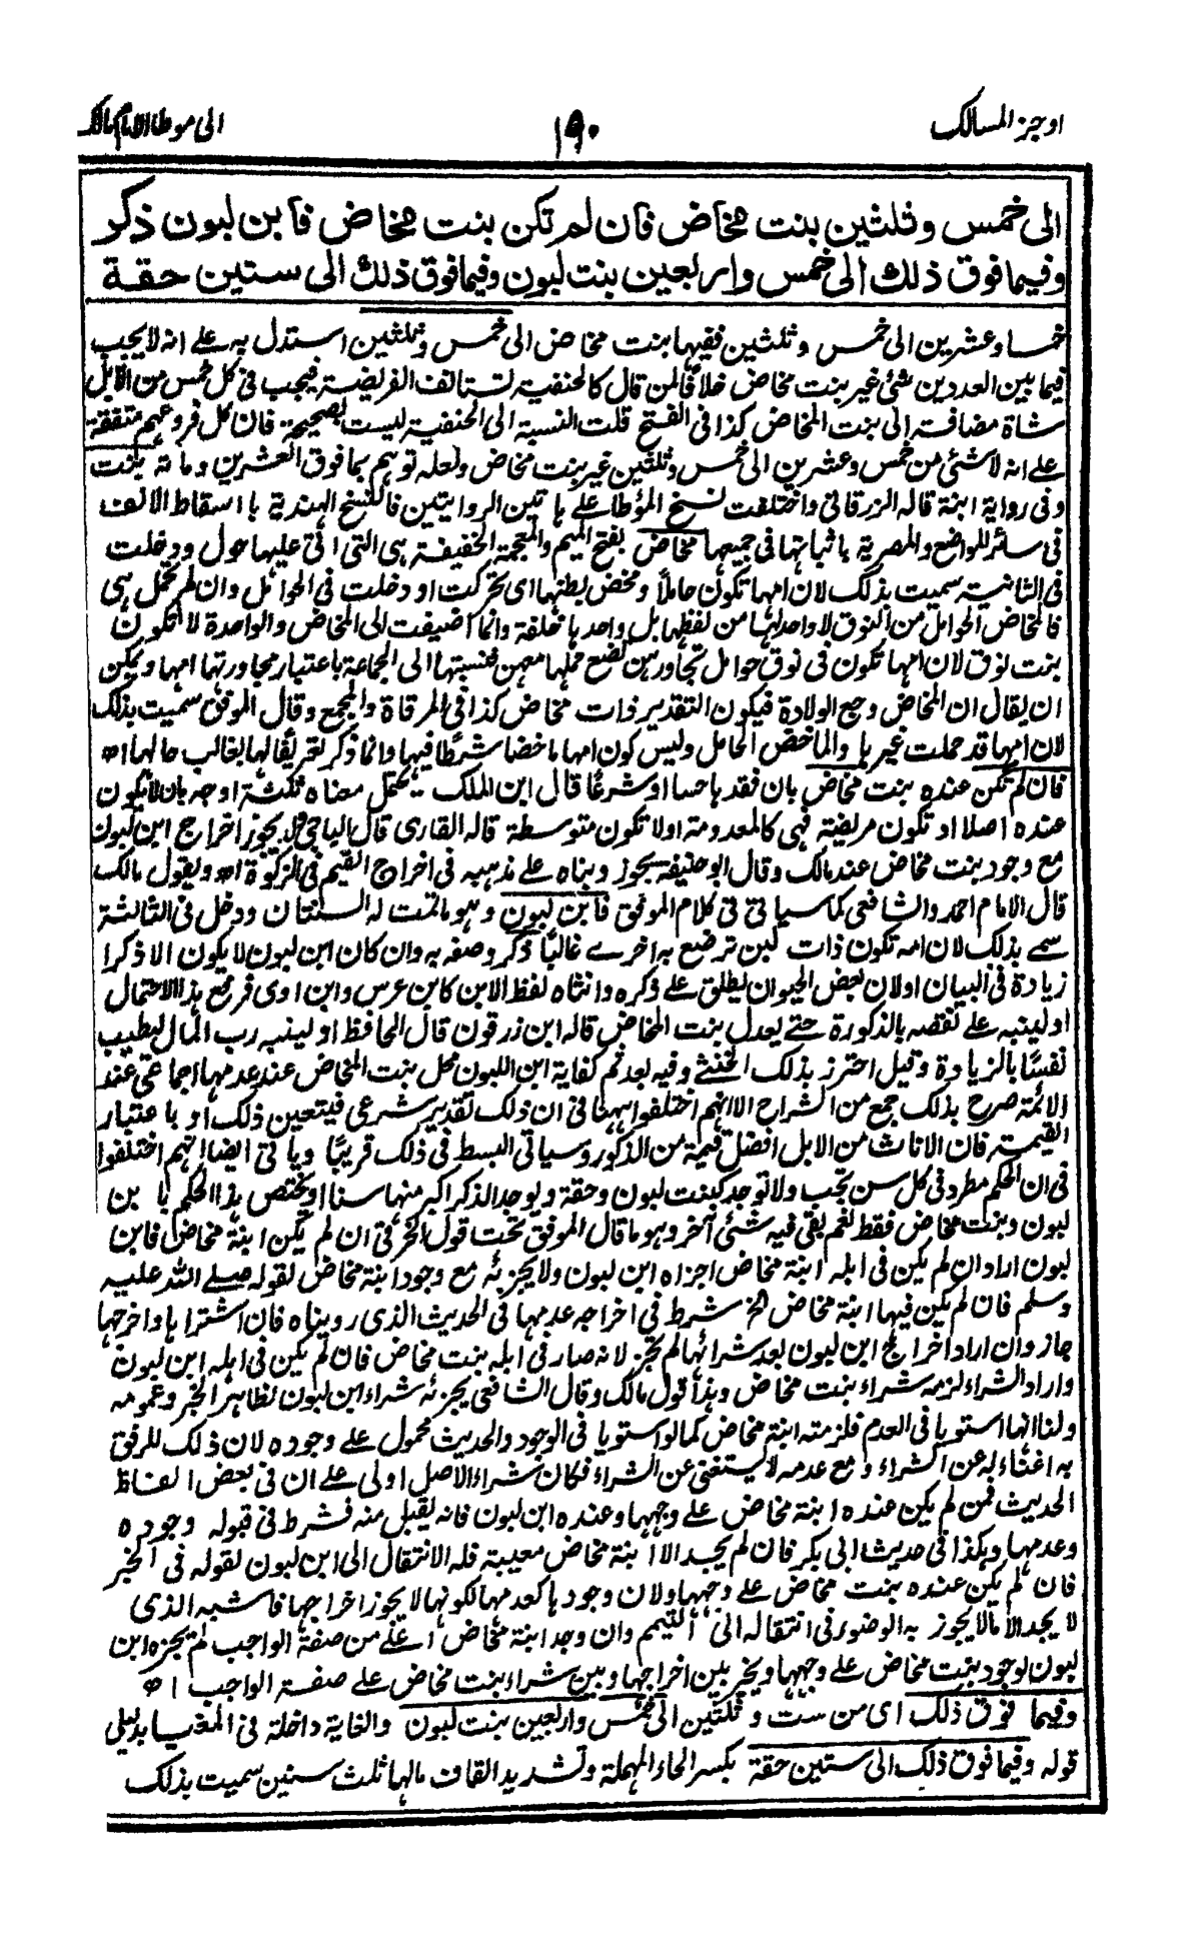 اوجز المسالك
١٩٠
الى موطا الامام مالك
الى خمس وثلثين بنت مخاض فان لم تكن بنت مخاض فابن لبون ذكر
وفيما فوق ذلك الى خمس واربعين بنت لبون وفيما فوق ذلك الى ستين حقة
خمسا وعشرين الى خمس وثلثين ففيها بنت مخاض الى خمس وثلثين استدل به على انه لا يجب
فيما بين العددين شئ غير بنت مخاض خلافًا لمن قال كالحنفية تستانف الفريضة فيجب فى كل خمس من الابل
شاة مضافة الى بنت المخاض كذا فى الفتح قلت النسبة الى الحنفية ليست بصحيحة فان كل فروعهم متفقة
على انه لا شئ من خمس وعشرين الى خمس وثلثين غير بنت مخاض ولعله توهم بما فوق العشرين ومائة بنت
وفى رواية ابنة قاله الزرقانى واختلفت نسخ المؤطا على هاتين الروايتين فالنسخ الهندية باسقاط الالف
فى سائر المواضع والمصرية باثباتها فى جميعها مخاض بفتح الميم والمعجمة الخفيفة هى التى اتى عليها حول ودخلت
فى الثانية سميت بذلك لان امها تكون حاملًا ومخض بطنها اى تحركت او دخلت فى الحوامل وان لم تحمل هى
فالمخاض الحوامل من النوق لا واحد لها من لفظها بل واحدها خلفة وانما اضيفت الى المخاض والواحدة لا تكون
بنت نوق لان امها تكون فى نوق حوامل تجاورهن تضع حملها معهن فنسبتها الى الجماعة باعتبار مجاورتها امها ويمكن
ان يقال ان المخاض وجع الولادة فيكون التقدير ذات مخاض كذا فى المرقاة والمجمع وقال الموفق سميت بذلك
لان امها قد حملت غيرها والماخض الحامل وليس كون امها ماخضا شرطًا فيها وانما ذكر تعريفًا لها بغالب حالها اھ
فان لم تكن عنده بنت مخاض بان فقدها حسا او شرعًا قال ابن الملك يحتمل معناه ثلثة اوجه بان لا يكون
عنده اصلا او تكون مريضة فهى كالمعدومة او لا تكون متوسطة قاله القارى قال الباجى فلا يجوز اخراج ابن لبون
مع وجود بنت مخاض عند مالك وقال ابو حنيفة يجوز وبناه على مذهبه فى اخراج القيم فى الزكوة اھ وبقول مالك
قال الامام احمد والشافعى كما سياتى فى كلام الموفق فابن لبون وهو ما تمت له السنتان ودخل فى الثالثة
سمى بذلك لان امه تكون ذات لبن ترضع به اخرى غالبًا ذكر وصفه به وان كان ابن لبون لا يكون الا ذكرا
زيادة فى البيان او لان بعض الحيوان يطلق على ذكره وانثاه لفظ الابن كابن عرس وابن اوى فرفع هذا الاحتمال
او لينبه على نقصه بالذكورة حتى يعدل بنت المخاض قاله ابن زرقون قال الحافظ او لينبه رب المال ليطيب
نفسًا بالزيادة وقيل احترز بذلك الخنثى وفيه بعد ثم كفاية ابن اللبون محل بنت المخاض عند عدمها اجماعى عند
الائمة صرح بذلك جمع من الشراح الا انهم اختلفوا ههنا فى ان ذلك تقدير شرعى فيتعين ذلك او باعتبار
القيمة فان الاناث من الابل افضل قيمة من الذكور وسياتى البسط فى ذلك قريبًا وياتى ايضا انهم اختلفوا
فى ان الحكم مطرد فى كل سن تجب ولا توجد كبنت لبون وحقة ويوجد الذكر اكبر منها سنا او يختص هذا الحكم بابن
لبون وبنت مخاض فقط نعم بقى فيه شئ آخر وهو ما قال الموفق تحت قول الخرقى ان لم يكن ابنة مخاض فابن
لبون اراد ان لم يكن فى ابله ابنة مخاض اجزاه ابن لبون ولا يجزئه مع وجود ابنة مخاض لقوله صلى الله عليه
وسلم فان لم يكن فيها ابنة مخاض الخ شرط فى اخراجه عدمها فى الحديث الذى رويناه فان اشتراها واخرجها
جاز وان اراد اخراج ابن لبون بعد شرائها لم يجز لانه صار فى ابله بنت مخاض فان لم يكن فى ابله ابن لبون
واراد الشراء لزمه شراء بنت مخاض وهذا قول مالك وقال الشافعى يجزئه شراء ابن لبون لظاهر الخبر وعمومه
ولنا انهما استويا فى العدم فلزمته ابنة مخاض كما لو استويا فى الوجود والحديث محمول على وجوده لان ذلك للرفق
به اغناء له عن الشراء ومع عدمه لا يستغنى عن الشراء فكان شراء الاصل اولى على ان فى بعض الفاظ
الحديث فمن لم يكن عنده ابنة مخاض على وجهها وعنده ابن لبون فانه يقبل منه فشرط فى قبوله وجوده
وعدمها وهكذا فى حديث ابى بكر فان لم يجد الا ابنة مخاض معيبة فله الانتقال الى ابن لبون لقوله فى الخبر
فان لم يكن عنده بنت مخاض على وجهها ولان وجودها كعدمها لكونها لا يجوز اخراجها فاشبه الذى
لا يجد الا ما لا يجوز به الوضوء فى انتقاله الى التيمم وان وجد ابنة مخاض اعلى من صفة الواجب لم يجزه ابن
لبون لوجود بنت مخاض على وجهها ويخير بين اخراجها وبين شراء بنت مخاض على صفة الواجب اھ
وفيما فوق ذلك اى من ست وثلثين الى خمس واربعين بنت لبون والغاية داخلة فى المغيا بدليل
قوله وفيما فوق ذلك الى ستين حقة بكسر الحاء المهملة وتشديد القاف مالها ثلث سنين سميت بذلك